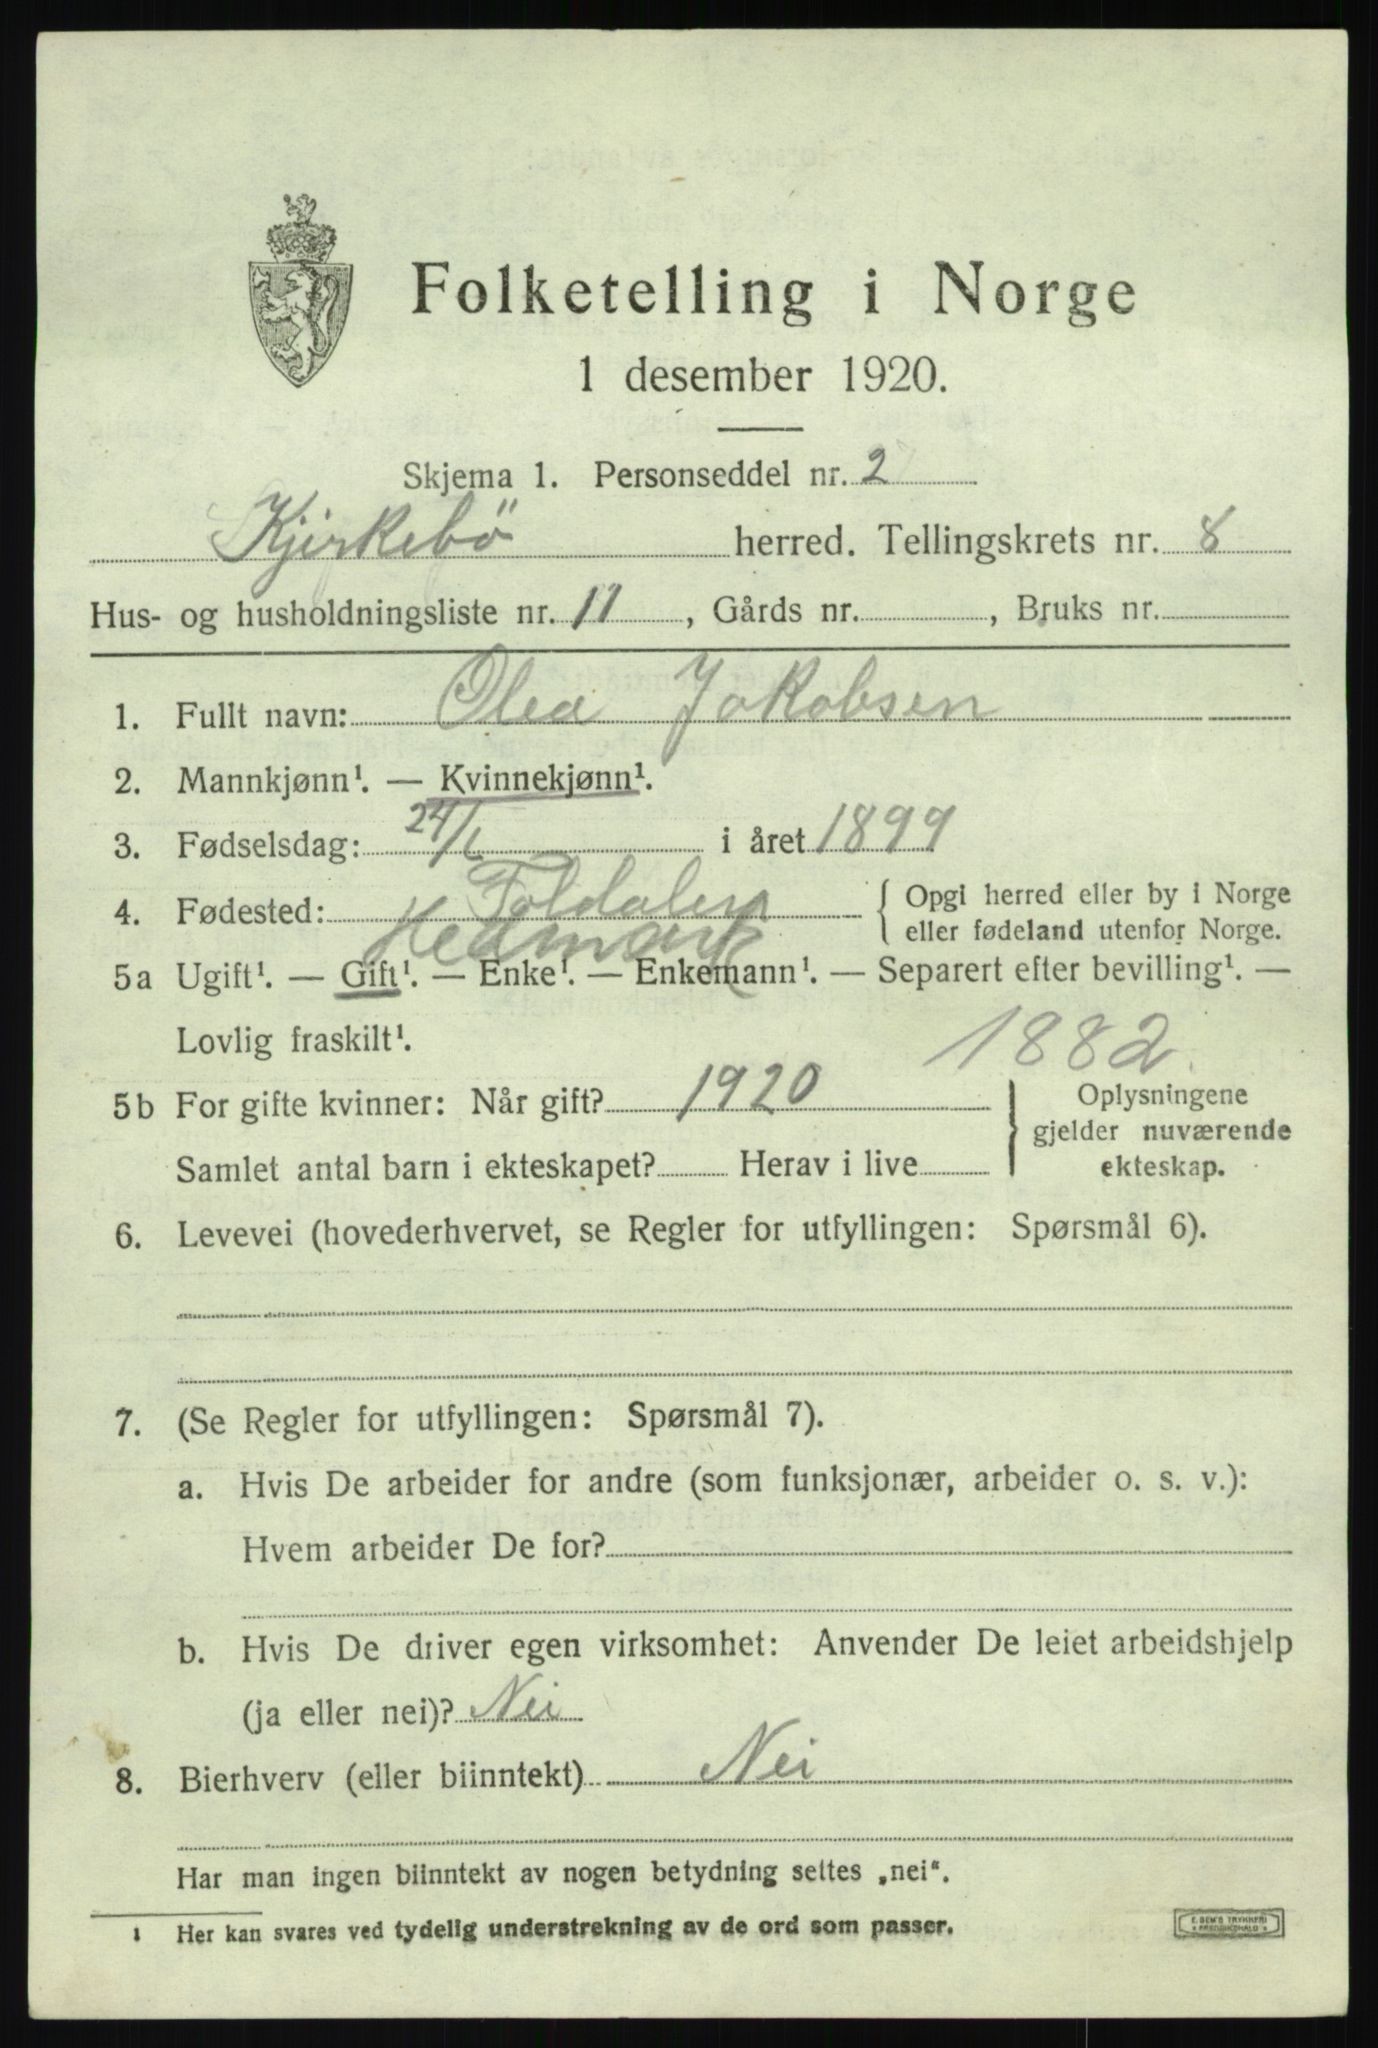 Folketelling i Norge
1 desember 1920.
Skjema 1. Personseddel nr. 2
Kjirkebö herred. Tellingskrets nr. 8
Hus- og husholdningsliste nr. 11, Gårds nr. , Bruks nr.
1. Fullt navn: Olea Jakobsen
2. Mannkjønn¹. — Kvinnekjønn¹.
3. Fødselsdag: 24/6 i året 1899
4. Fødested: Foldalen { Opgi herred eller by i Norge
Hedmark eller fødeland utenfor Norge.
5a Ugift¹. — Gift¹. — Enke¹. — Enkemann¹. — Separert efter bevilling¹. —
Lovlig fraskilt¹. 1882
5b For gifte kvinner: Når gift? 1920 } Oplysningene
gjelder nuværende
Samlet antal barn i ekteskapet? Herav i live ekteskap.
6. Levevei (hovederhvervet, se Regler for utfyllingen: Spørsmål 6).
7. (Se Regler for utfyllingen: Spørsmål 7).
a. Hvis De arbeider for andre (som funksjonær, arbeider o. s. v.):
Hvem arbeider De for?
b. Hvis De driver egen virksomhet: Anvender De leiet arbeidshjelp
(ja eller nei)? Nei
8. Bierhverv (eller biinntekt) Nei
Har man ingen biinntekt av nogen betydning settes „nei".
1 Her kan svares ved tydelig understrekning av de ord som passer.
E. SEM'S TRYKKERI
FREDRIKSHALD